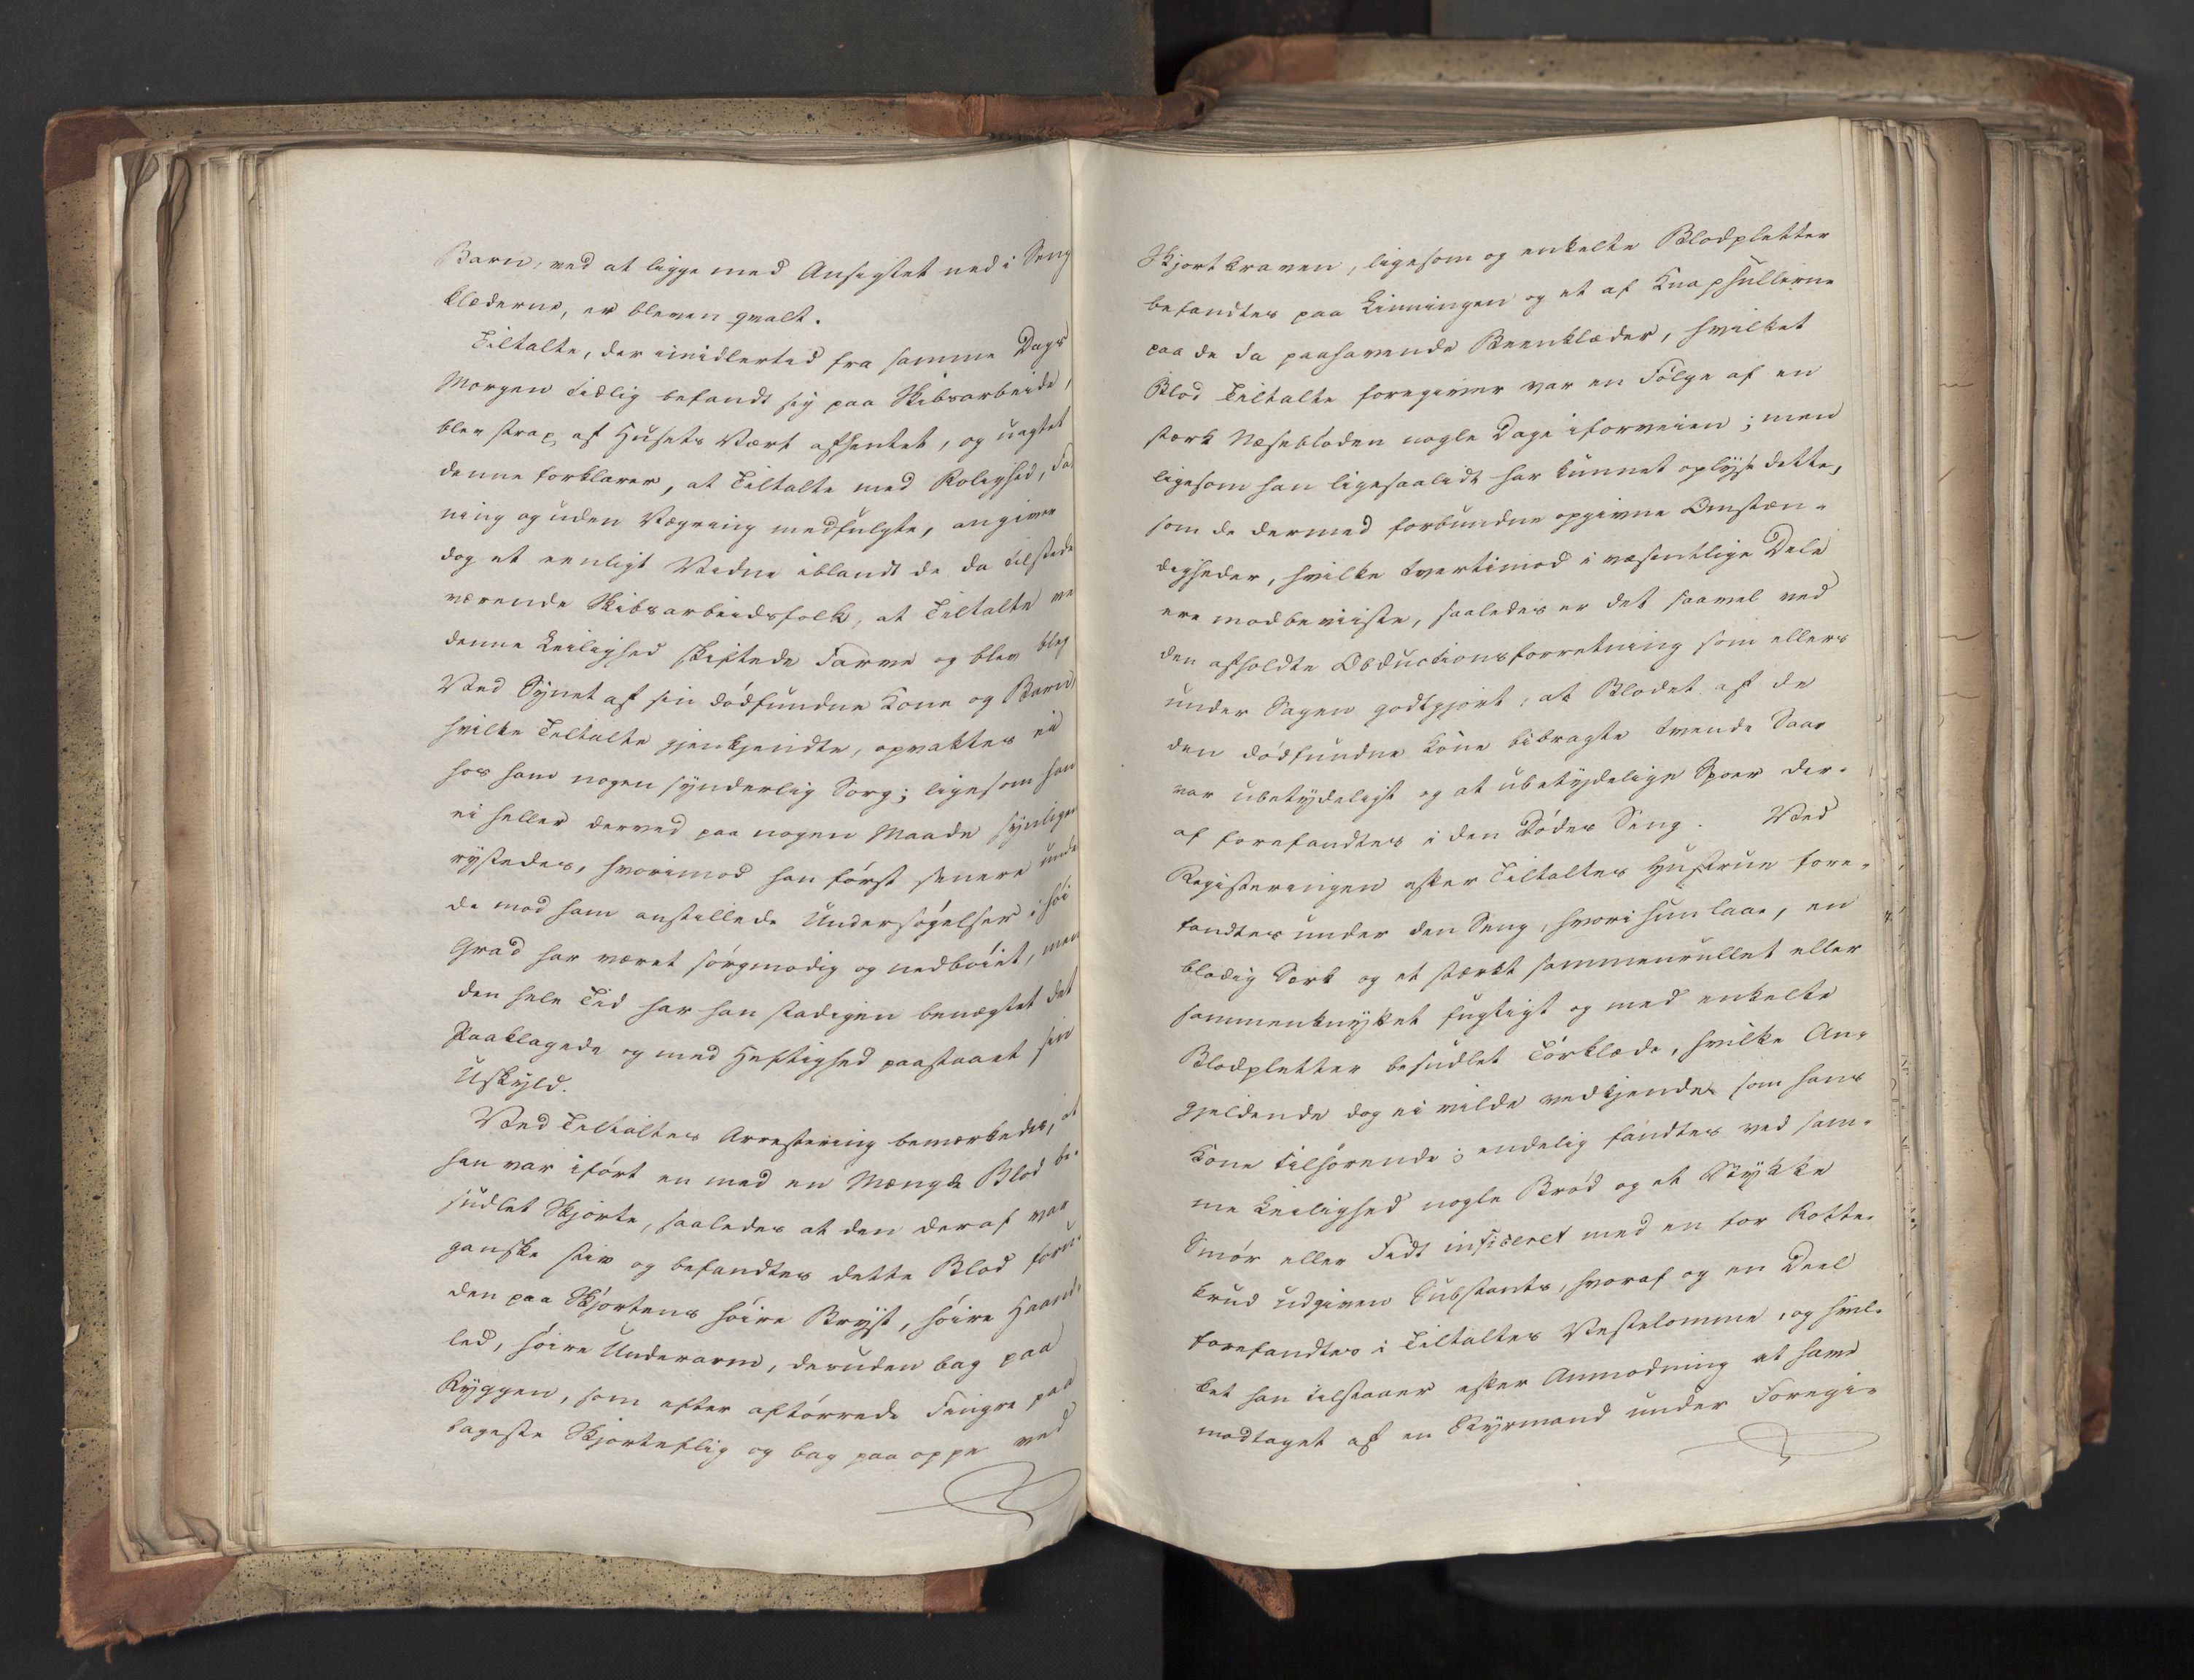 Barn, ved at ligge med Ansigtet ned i Seng
klæderne, er bleven qvalt.
Tiltalte, der imidlertid fra samme Dags
Morgen tidlig befandt sig paa Skibsarbeide,
blev strax af Husets Vært afhentet, og uagtet
denne forklarer, at Tiltalte med Rolighed, Fat
ning og uden Vægring medfulgte, angiver
dog et eenligt Vidne iblandt de da tilstede
værende Skibsarbeidsfolk, at Tiltalte ve
denne Leilighed skiftede Farve og blev bleg
Ved Synet af sin dödfundne Kone og Barn,
hvilke Tiltalte gjenkjendte, opvaktes ei
hos ham nogen synderlig Sorg; ligesom han
ei heller derved paa nogen Maade synligen
rystedes, hvorimod han först senere unde
de mod ham anstillede Undersögelser i höi
Grad har været sörgmodig og nedböiet, men
den hele Tid har han stadigen benægtet det
Paaklagede og med Heftighed paastaaet sin
Uskyld.
Ved Tiltaltes Arrestering bemærkedes, at
han var ifört en med en Mængde Blod be-
sudlet Skjorte, saaledes at den deraf var
ganske stiv og befandtes dette Blod foru-
den paa Skjortens höire Bryst, höire Haand-
led, höire Underarm, desuden bag paa
Ryggen, som efter aftörrede Fingre paa
bageste Skjorteflig og bag paa oppe ved
Skjortkraven, ligesom og enkelte Blodpletter
befandtes paa Linningen og et af Knaphullerne
paa de da paahavende Beenklæder, hvilket
Blod Tiltalte foregiver var en Fölge af en
stærk Næseblöden nogle Dage iforveien; men
ligesom han ligesaalidt har kunnet oplyse dette,
som de dermed forbundne opgivne Omstæn-
digheder, hvilke tvertimod i væsentlige Dele
ere modbeviiste, saaledes er det saavel ved
den afholdte Obductionsforretning som ellers
under Sagen godtgjort, at Blodet af de
den dödfundne Kone bibragte tvende Saar
var ubetydeligt og at ubetydelige Spoer der-
af forefandtes i den Dödes Seng. Ved
Registeringen efter Tiltaltes Hustrue fore-
fandtes under den Seng, hvori hun laae, en
blodig Særk og et stærkt sammenrullet eller
sammenknyttet fugtigt og med enkelte
Blodpletter besudlet Törklæde, hvilke An-
gjeldende dog ei vilde vedkjende som hans
Kone tilhörende; endelig fandtes ved sam-
me Leilighed nogle Bröd og et Stykke
Smör eller Fedt inficeret med en for Rotte-
krud udgiven Substants, hvoraf og en Deel
forefandtes i Tiltaltes Vestelomme, og hvil-
ket han tilstaaer efter Anmodning at have
modtaget af en Styrmand under Foregi-